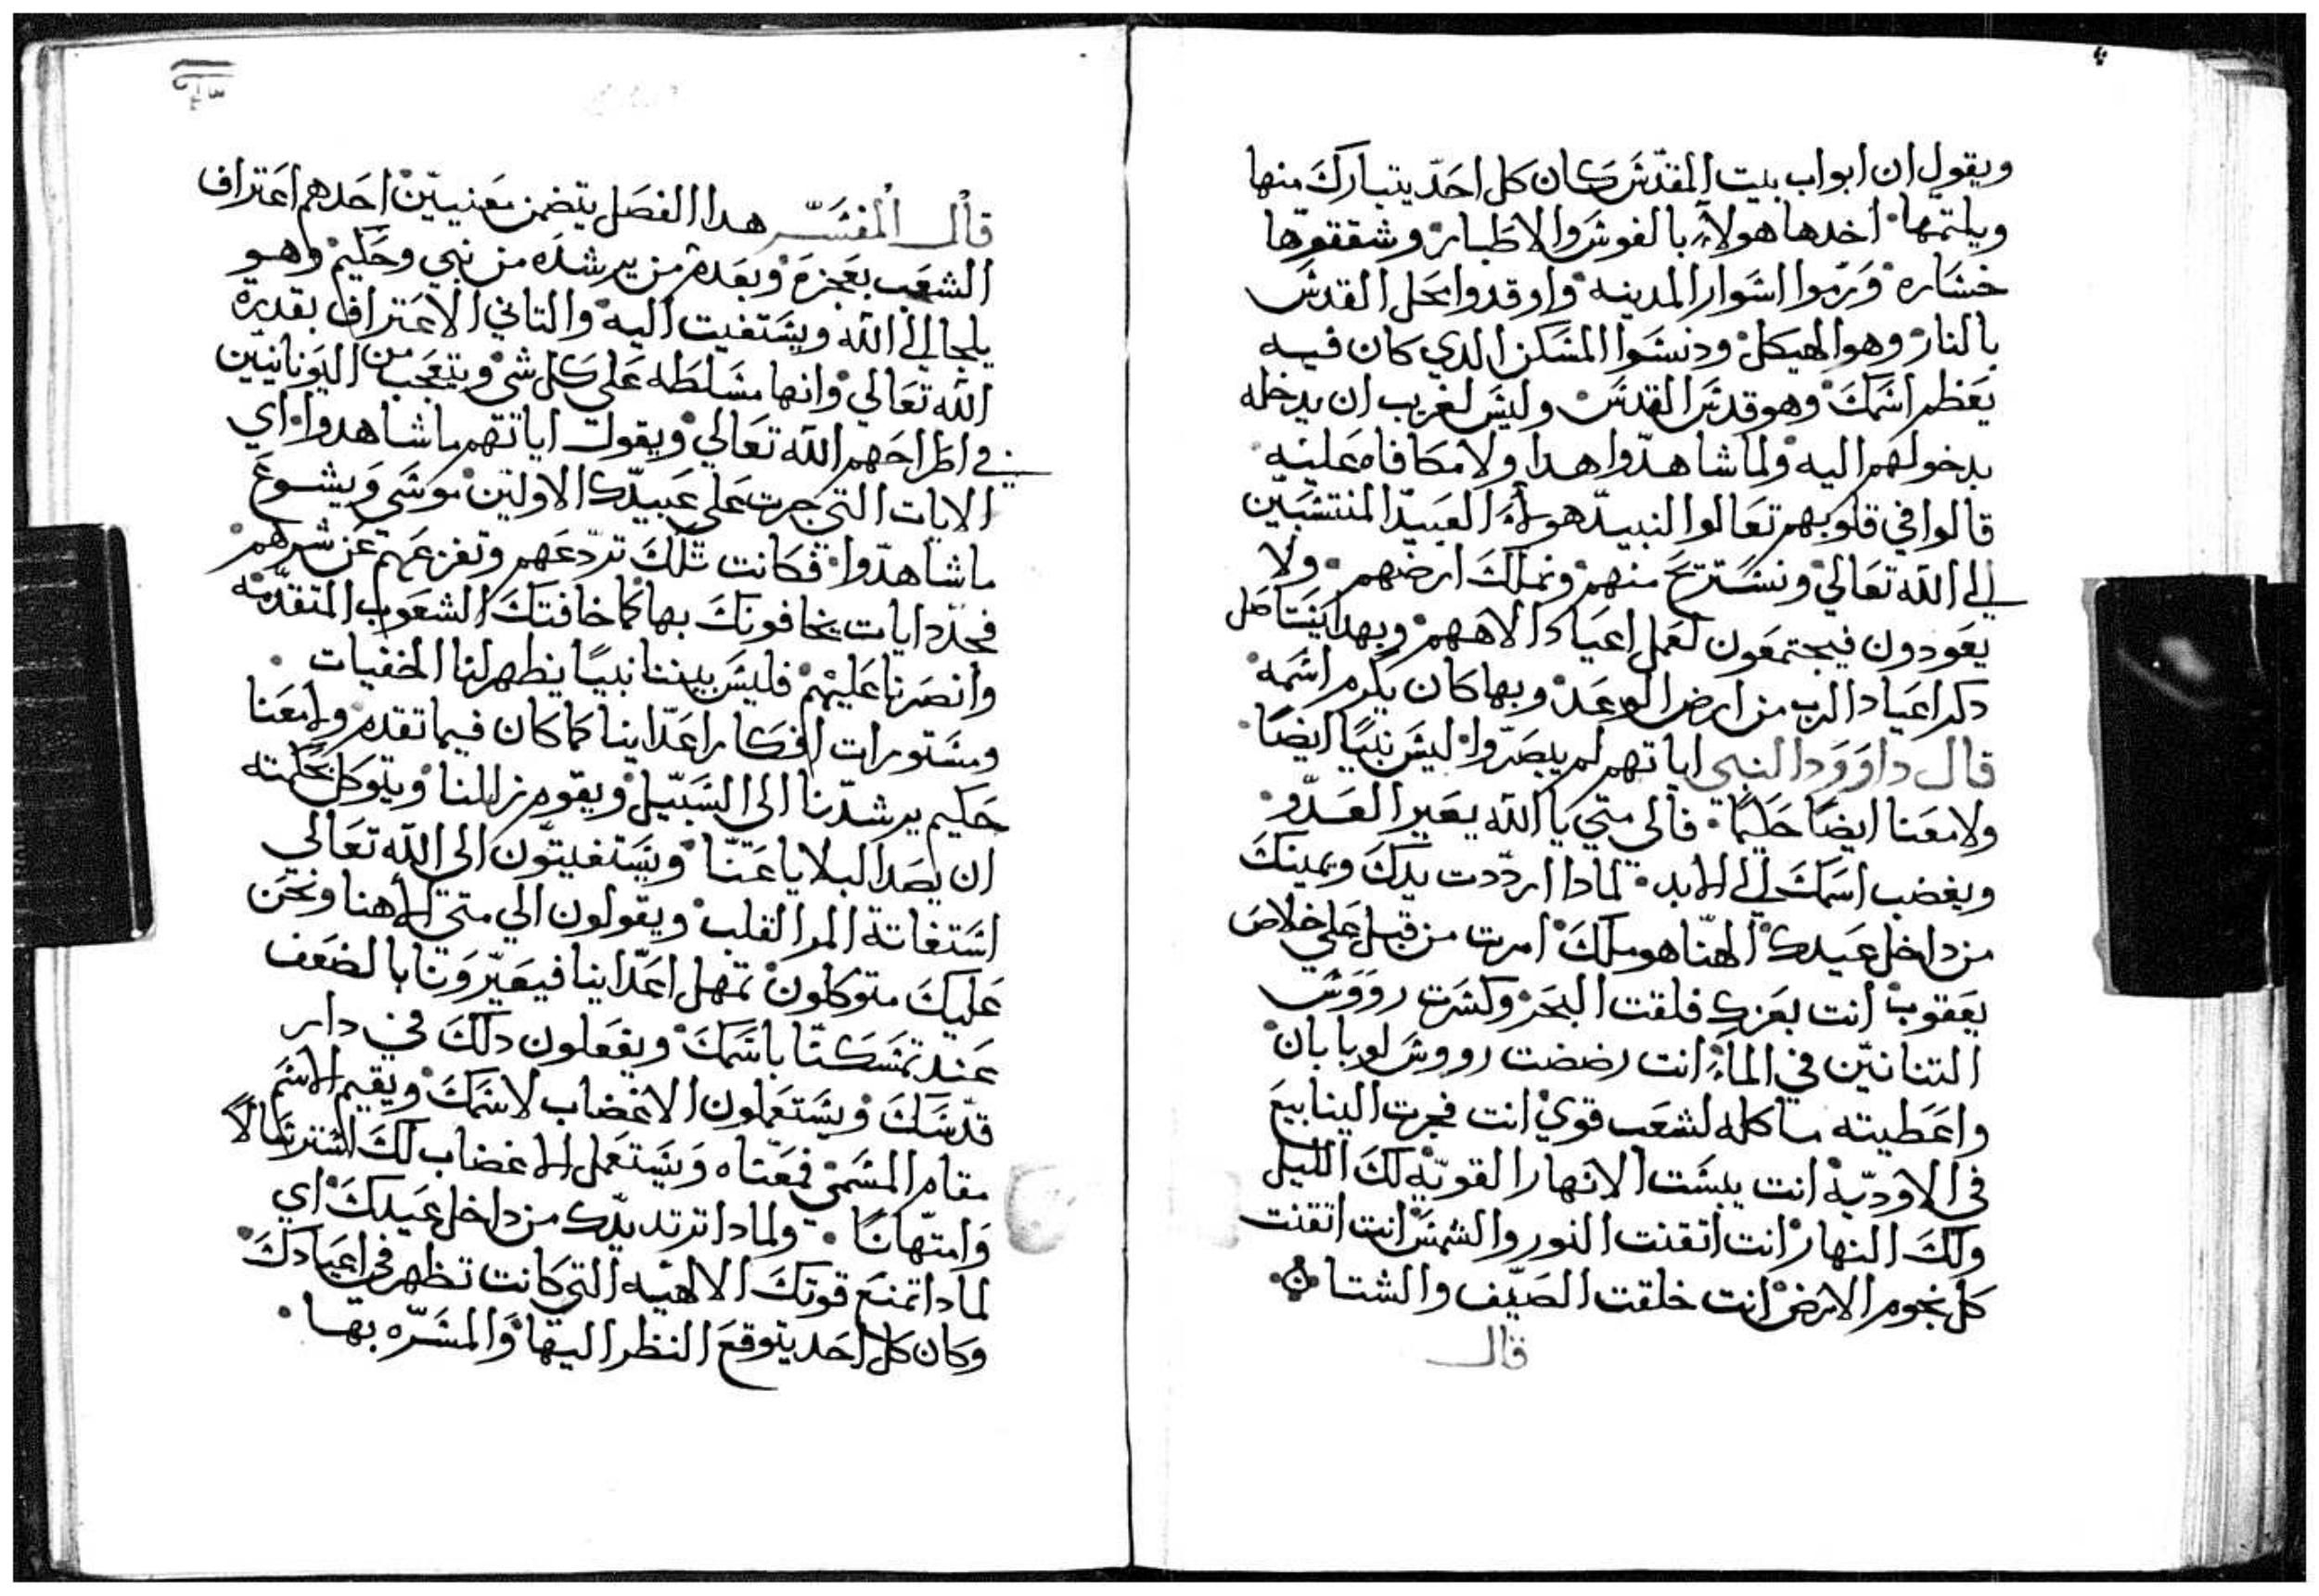 ويقول ان ابواب بيت المقدس كان كل احد يتبارك منها
ويلتمها اخدها هولاء بالفوس والاطبار وشققوها
خساره ورموا اسوار المدينه واوقدوا محل القدس
بالنار وهو الهيكل ودنسوا المسكن الدي كان فيه
يعظم اسمك وهو قدس القدس وليس لغريب ان يدخله
بدخولهم اليه ولما شاهدوا هدا ولا مكافاه عليه
قالوا في قلوبهم تعالوا لنبيد هولاء العبيد المنتسبين
الي الله تعالي ونستريح منهم ونملك ارضهم ولا
يعودون فيجتمعون لعمل اعياد الاههم وبهدا يستاصل
دكر اعياد الرب من ارض الوعد وبها كان يكرم اسمه
قال داوود النبي اياتهم لم يبصروا ليس نبيا ايضا
ولا معنا ايضا حكيما فالى متي يا الله يعير العدو
ويغضب اسمك الي الابد لمادا ارددت يدك ويمينك
من داخل عبدك الهنا هو ملك امرت من قبل على خلاص
يعقوب انت بعزك فلقت البحر وكسرت رووس
التنانين في الماء انت رضضت رووس لوياتان
واعطيته ماكله لشعب قوي انت فجرت الينابيع
في الاوديه انت يبست الانهار القويه لك الليل
ولك النهار انت اتقنت النور والشمس انت اتقنت
كل نجوم الارض انت خلقت الصيف والشتا
قال
قال المفسر هدا الفصل يتضمن معنيين احدهم اعتراف
الشعب بعجزه وبعدم من يرشده من نبي وحكيم وهو
يلجا الي الله ويستغيت اليه والتاني الاعتراف بقدرة
الله تعالي وانها مسلطه على كل شي ويتعجب من اليونانيين
في اطراحهم الله تعالي ويقول اياتهم ما شاهدوا اي
الايات التي جرت علي عبيدك الاولين موسي ويشوع
ما شاهدوا فكانت تلك تردعهم وتفزعهم عن شرهم
فجدد ايات يخافونك بها كما خافتك الشعوب المتقدمه
وانصرنا عليهم فليس بيننا نبيا يظهر لنا الخفيات
ومستورات افكار اعداينا كما كان فيما تقدم ولا معنا
حكيم يرشدنا الى السبيل ويقوم زللنا ويتوكل بحكمته
ان يصد البلايا عنا ويستغيتون الى الله تعالي
استغاتة المر القلب ويقولون الي متي الاهنا ونحن
عليك متوكلون تمهل اعداينا فيعيرونا بالضعف
عند تمسكنا باسمك ويفعلون دلك في دار
قدسك ويستعملون الاغضاب لاسمك ويقيم الاسم
مقام المسمي فمعناه ويستعمل الاغضاب لك استرسالا
وامتهانا ولمادا ترتد يدك من داخل عبدك اي
لمادا تمنع قوتك الالاهيه التي كانت تظهر في اعيادك
وكان كل احد يتوقع النظر اليها والمسره بها